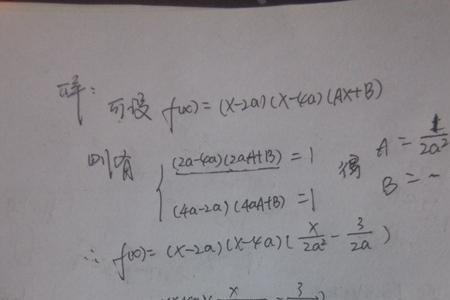 解：可设 f(x)=(x-2a)(x-4a)(Ax+B)
则有 { (2a-4a)(2aA+B)=1
(4a-2a)(4aA+B)=1
得 A=1/2a²
B=-
∴ f(x)=(x-2a)(x-4a)(x/2a² - 3/2a)